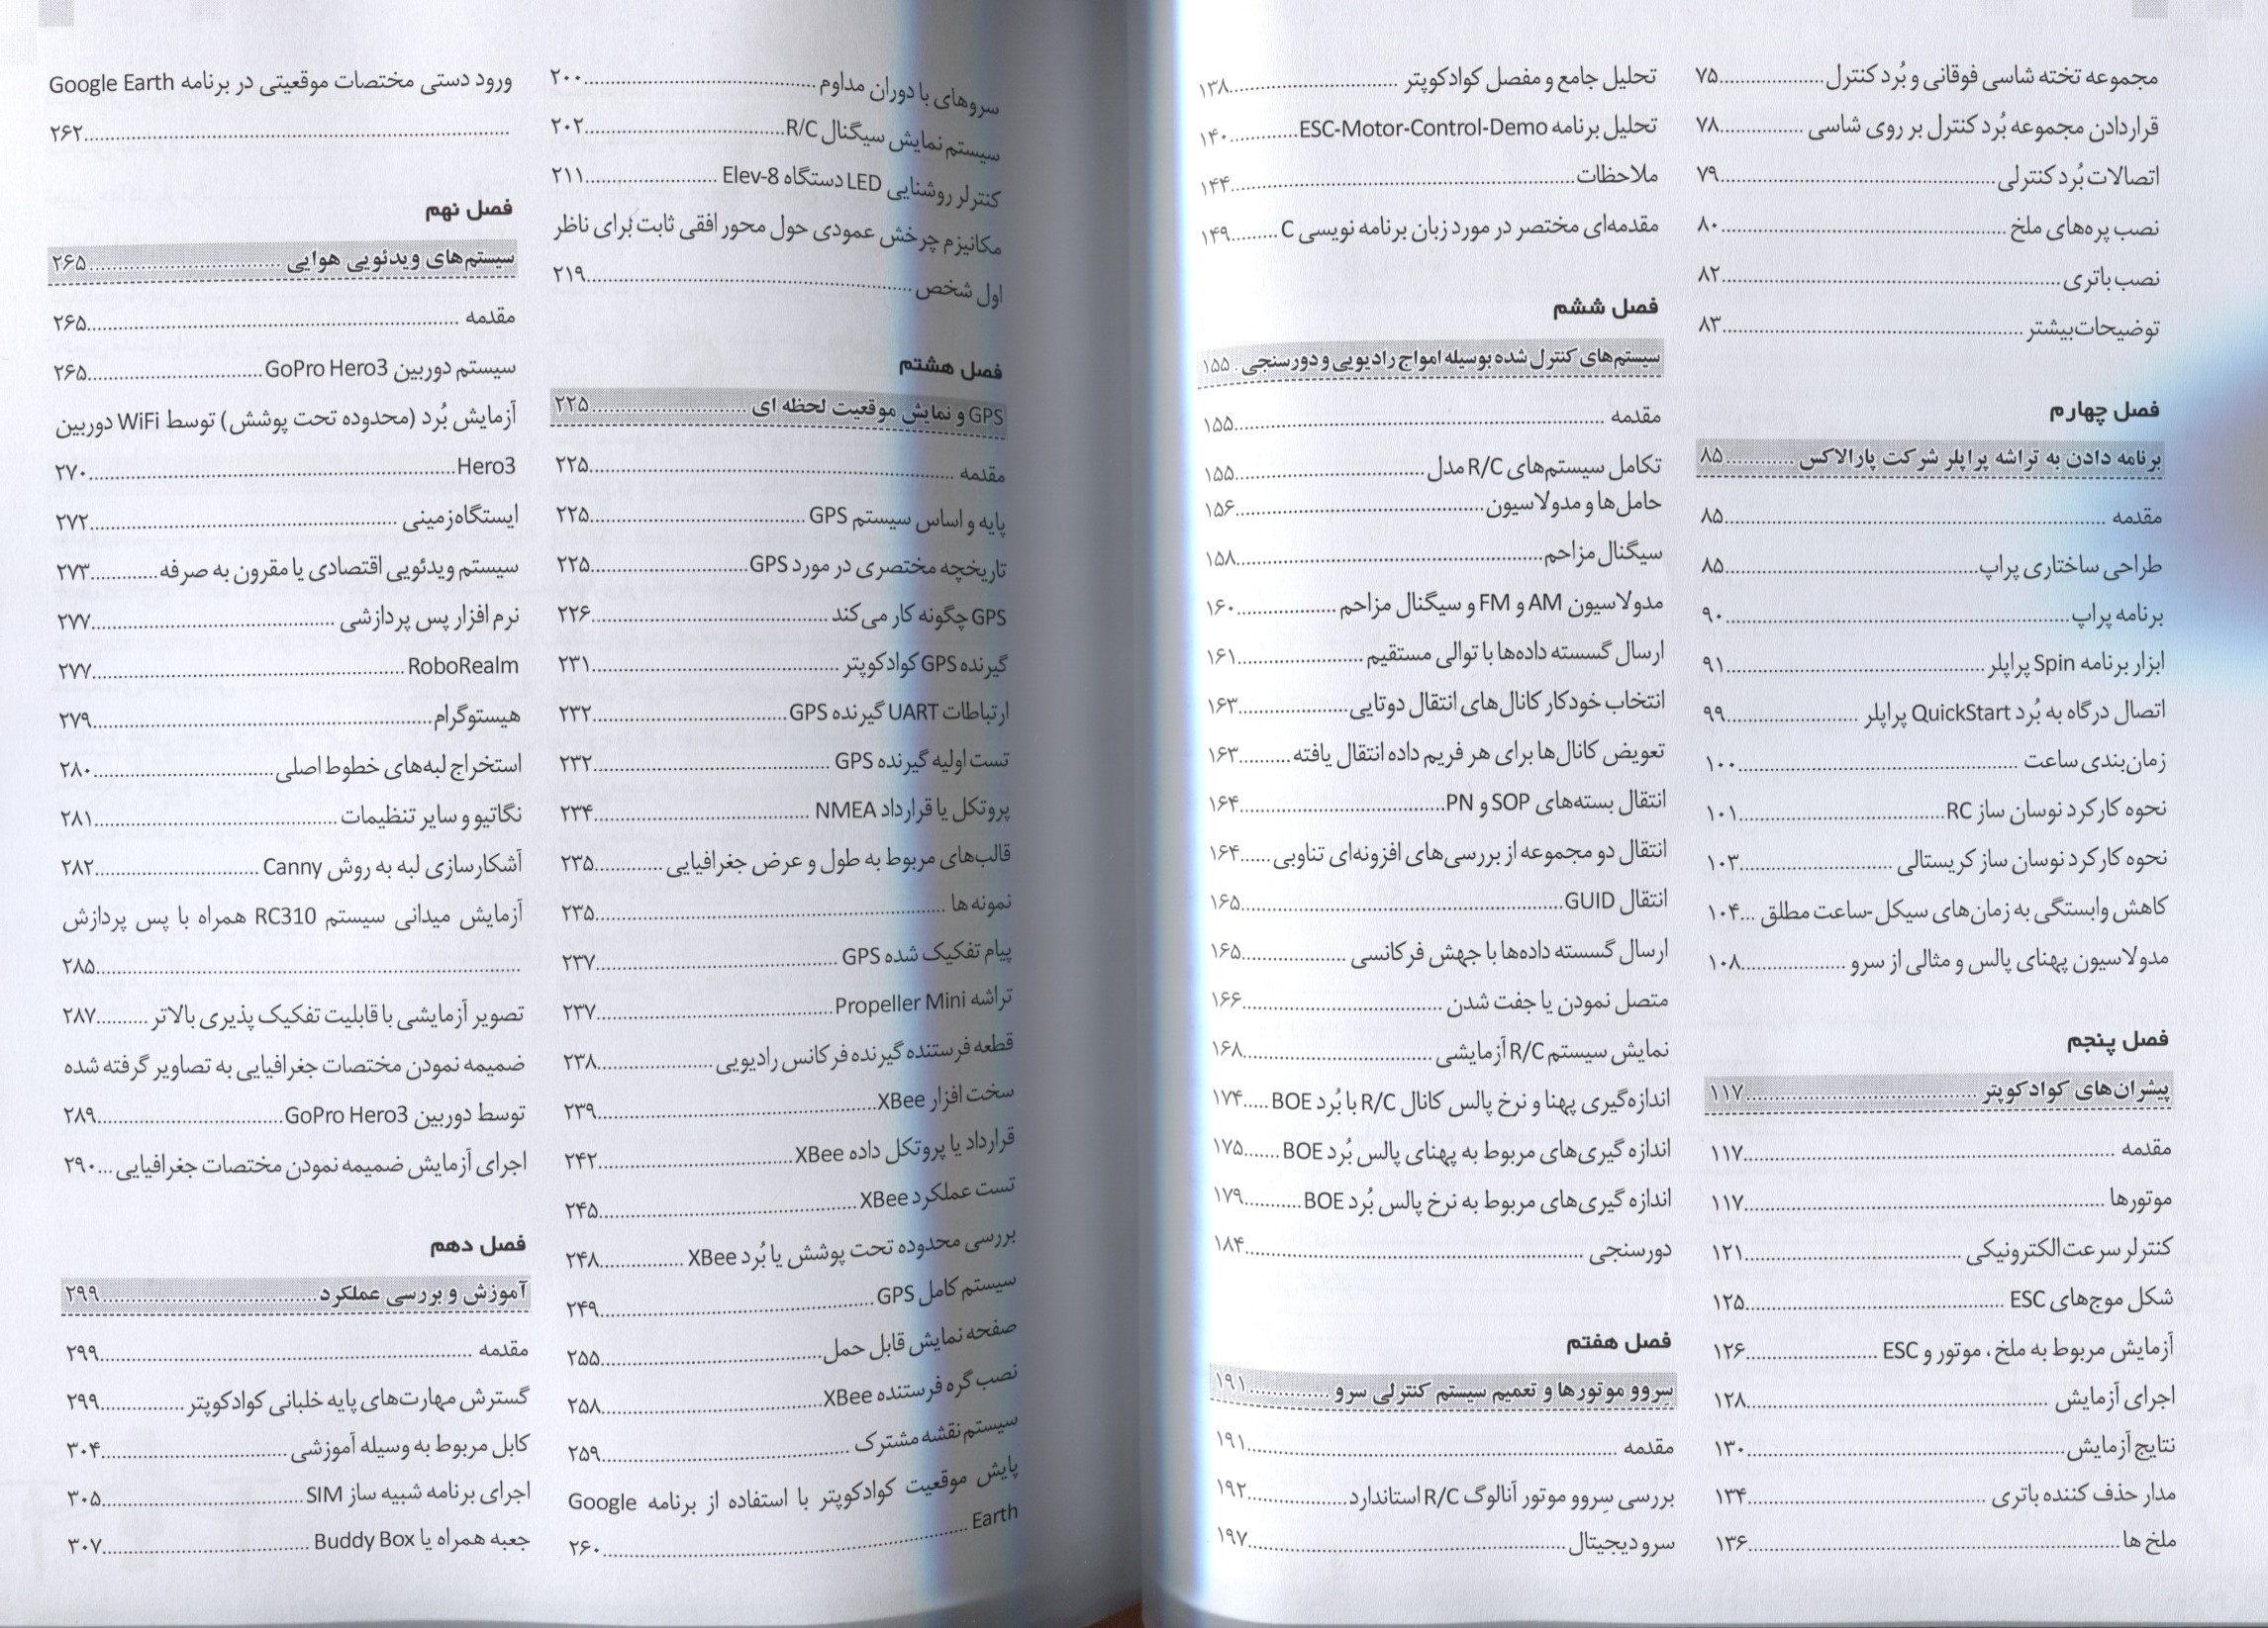 مجموعه تخته شاسی فوقانی و بُرد کنترل....................۷۵
قراردادن مجموعه بُرد کنترل بر روی شاسی ................۷۸
اتصالات بُرد کنترلی....................۷۹
نصب پره‌های ملخ ....................۸۰
نصب باتری....................۸۲
توضیحات‌بیشتر ....................۸۳
فصل چهارم
برنامه دادن به تراشه پراپلر شرکت پارالاکس ............۸۵
مقدمه ....................۸۵
طراحی ساختاری پراپ....................۸۵
برنامه پراپ....................۹۰
ابزار برنامه Spin پراپلر ....................۹۱
اتصال درگاه به بُرد QuickStart پراپلر ....................۹۹
زمان‌بندی ساعت ....................۱۰۰
نحوه کارکرد نوسان ساز RC....................۱۰۱
نحوه کارکرد نوسان ساز کریستالی ....................۱۰۳
کاهش وابستگی به زمان‌های سیکل-ساعت مطلق ...۱۰۴
مدولاسیون پهنای پالس و مثالی از سرو ....................۱۰۸
فصل پنجم
پیشران‌های کوادکوپتر ....................۱۱۷
مقدمه ....................۱۱۷
موتورها ....................۱۱۷
کنترلر سرعت الکترونیکی ....................۱۲۱
شکل موج‌های ESC ....................۱۲۵
آزمایش مربوط به ملخ، موتور و ESC ....................۱۲۶
اجرای آزمایش ....................۱۲۸
نتایج آزمایش....................۱۳۰
مدار حذف کننده باتری ....................۱۳۴
ملخ ها....................۱۳۶
تحلیل جامع و مفصل کوادکوپتر ....................۱۳۸
تحلیل برنامه ESC-Motor-Control-Demo............۱۴۰
ملاحظات....................۱۴۴
مقدمه‌ای مختصر در مورد زبان برنامه نویسی C ........۱۴۹
فصل ششم
سیستم‌های کنترل شده بوسیله امواج رادیویی و دورسنجی . ۱۵۵
مقدمه ....................۱۵۵
تکامل سیستم‌های R/C مدل ....................۱۵۵
حامل‌ها و مدولاسیون....................۱۵۶
سیگنال مزاحم....................۱۵۸
مدولاسیون AM و FM و سیگنال مزاحم ....................۱۶۰
ارسال گسسته داده‌ها با توالی مستقیم ....................۱۶۱
انتخاب خودکار کانال‌های انتقال دوتایی....................۱۶۳
تعویض کانال‌ها برای هر فریم داده انتقال یافته ..........۱۶۳
انتقال بسته‌های SOP و PN....................۱۶۴
انتقال دو مجموعه از بررسی‌های افزونه‌ای تناوبی ......۱۶۴
انتقال GUID....................۱۶۵
ارسال گسسته داده‌ها با جهش فرکانسی ....................۱۶۵
متصل نمودن یا جفت شدن ....................۱۶۶
نمایش سیستم R/C آزمایشی ....................۱۶۸
اندازه‌گیری پهنا و نرخ پالس کانال R/C با بُرد BOE .....۱۷۴
اندازه گیری‌های مربوط به پهنای پالس بُرد BOE.......۱۷۵
اندازه گیری‌های مربوط به نرخ پالس بُرد BOE..........۱۷۹
دورسنجی ....................۱۸۴
فصل هفتم
سِروو موتورها و تعمیم سیستم کنترلی سرو ..............۱۹۱
مقدمه ....................۱۹۱
بررسی سِروو موتور آنالوگ R/C استاندارد....................۱۹۲
سرو دیجیتال....................۱۹۷
سروهای با دوران مداوم ....................۲۰۰
سیستم نمایش سیگنال R/C....................۲۰۲
کنترلر روشنایی LED دستگاه Elev-8 ....................۲۱۱
مکانیزم چرخش عمودی حول محور افقی ثابت برای ناظر
اول شخص ....................۲۱۹
فصل هشتم
GPS و نمایش موقعیت لحظه ای ....................۲۲۵
مقدمه ....................۲۲۵
پایه و اساس سیستم GPS ....................۲۲۵
تاریخچه مختصری در مورد GPS....................۲۲۵
GPS چگونه کار می‌کند ....................۲۲۶
گیرنده GPS کوادکوپتر ....................۲۳۱
ارتباطات UART گیرنده GPS....................۲۳۲
تست اولیه گیرنده GPS ....................۲۳۲
پروتکل یا قرارداد NMEA ....................۲۳۴
قالب‌های مربوط به طول و عرض جغرافیایی .............۲۳۵
نمونه ها ....................۲۳۵
پیام تفکیک شده GPS ....................۲۳۷
تراشه Propeller Mini....................۲۳۷
قطعه فرستنده گیرنده فرکانس رادیویی ....................۲۳۸
سخت افزار XBee....................۲۳۹
قرارداد یا پروتکل داده XBee....................۲۴۲
تست عملکرد XBee ....................۲۴۵
بررسی محدوده تحت پوشش یا بُرد XBee ................۲۴۸
سیستم کامل GPS ....................۲۴۹
صفحه نمایش قابل حمل....................۲۵۵
نصب گره فرستنده XBee....................۲۵۸
سیستم نقشه مشترک ....................۲۵۹
پایش موقعیت کوادکوپتر با استفاده از برنامه Google
Earth ....................۲۶۰
ورود دستی مختصات موقعیتی در برنامه Google Earth
....................۲۶۲
فصل نهم
سیستم‌های ویدئویی هوایی ....................۲۶۵
مقدمه ....................۲۶۵
سیستم دوربین GoPro Hero3....................۲۶۵
آزمایش بُرد (محدوده تحت پوشش) توسط WiFi دوربین
Hero3....................۲۷۰
ایستگاه‌زمینی ....................۲۷۲
سیستم ویدئویی اقتصادی یا مقرون به صرفه.............۲۷۳
نرم افزار پس پردازشی ....................۲۷۷
RoboRealm ....................۲۷۷
هیستوگرام....................۲۷۹
استخراج لبه‌های خطوط اصلی....................۲۸۰
نگاتیو و سایر تنظیمات ....................۲۸۱
آشکارسازی لبه به روش Canny ....................۲۸۲
آزمایش میدانی سیستم RC310 همراه با پس پردازش
....................۲۸۵
تصویر آزمایشی با قابلیت تفکیک پذیری بالاتر ..........۲۸۷
ضمیمه نمودن مختصات جغرافیایی به تصاویر گرفته شده
توسط دوربین GoPro Hero3....................۲۸۹
اجرای آزمایش ضمیمه نمودن مختصات جغرافیایی ...۲۹۰
فصل دهم
آموزش و بررسی عملکرد....................۲۹۹
مقدمه ....................۲۹۹
گسترش مهارت‌های پایه خلبانی کوادکوپتر ................۲۹۹
کابل مربوط به وسیله آموزشی ....................۳۰۴
اجرای برنامه شبیه ساز SIM....................۳۰۵
جعبه همراه یا Buddy Box ....................۳۰۷